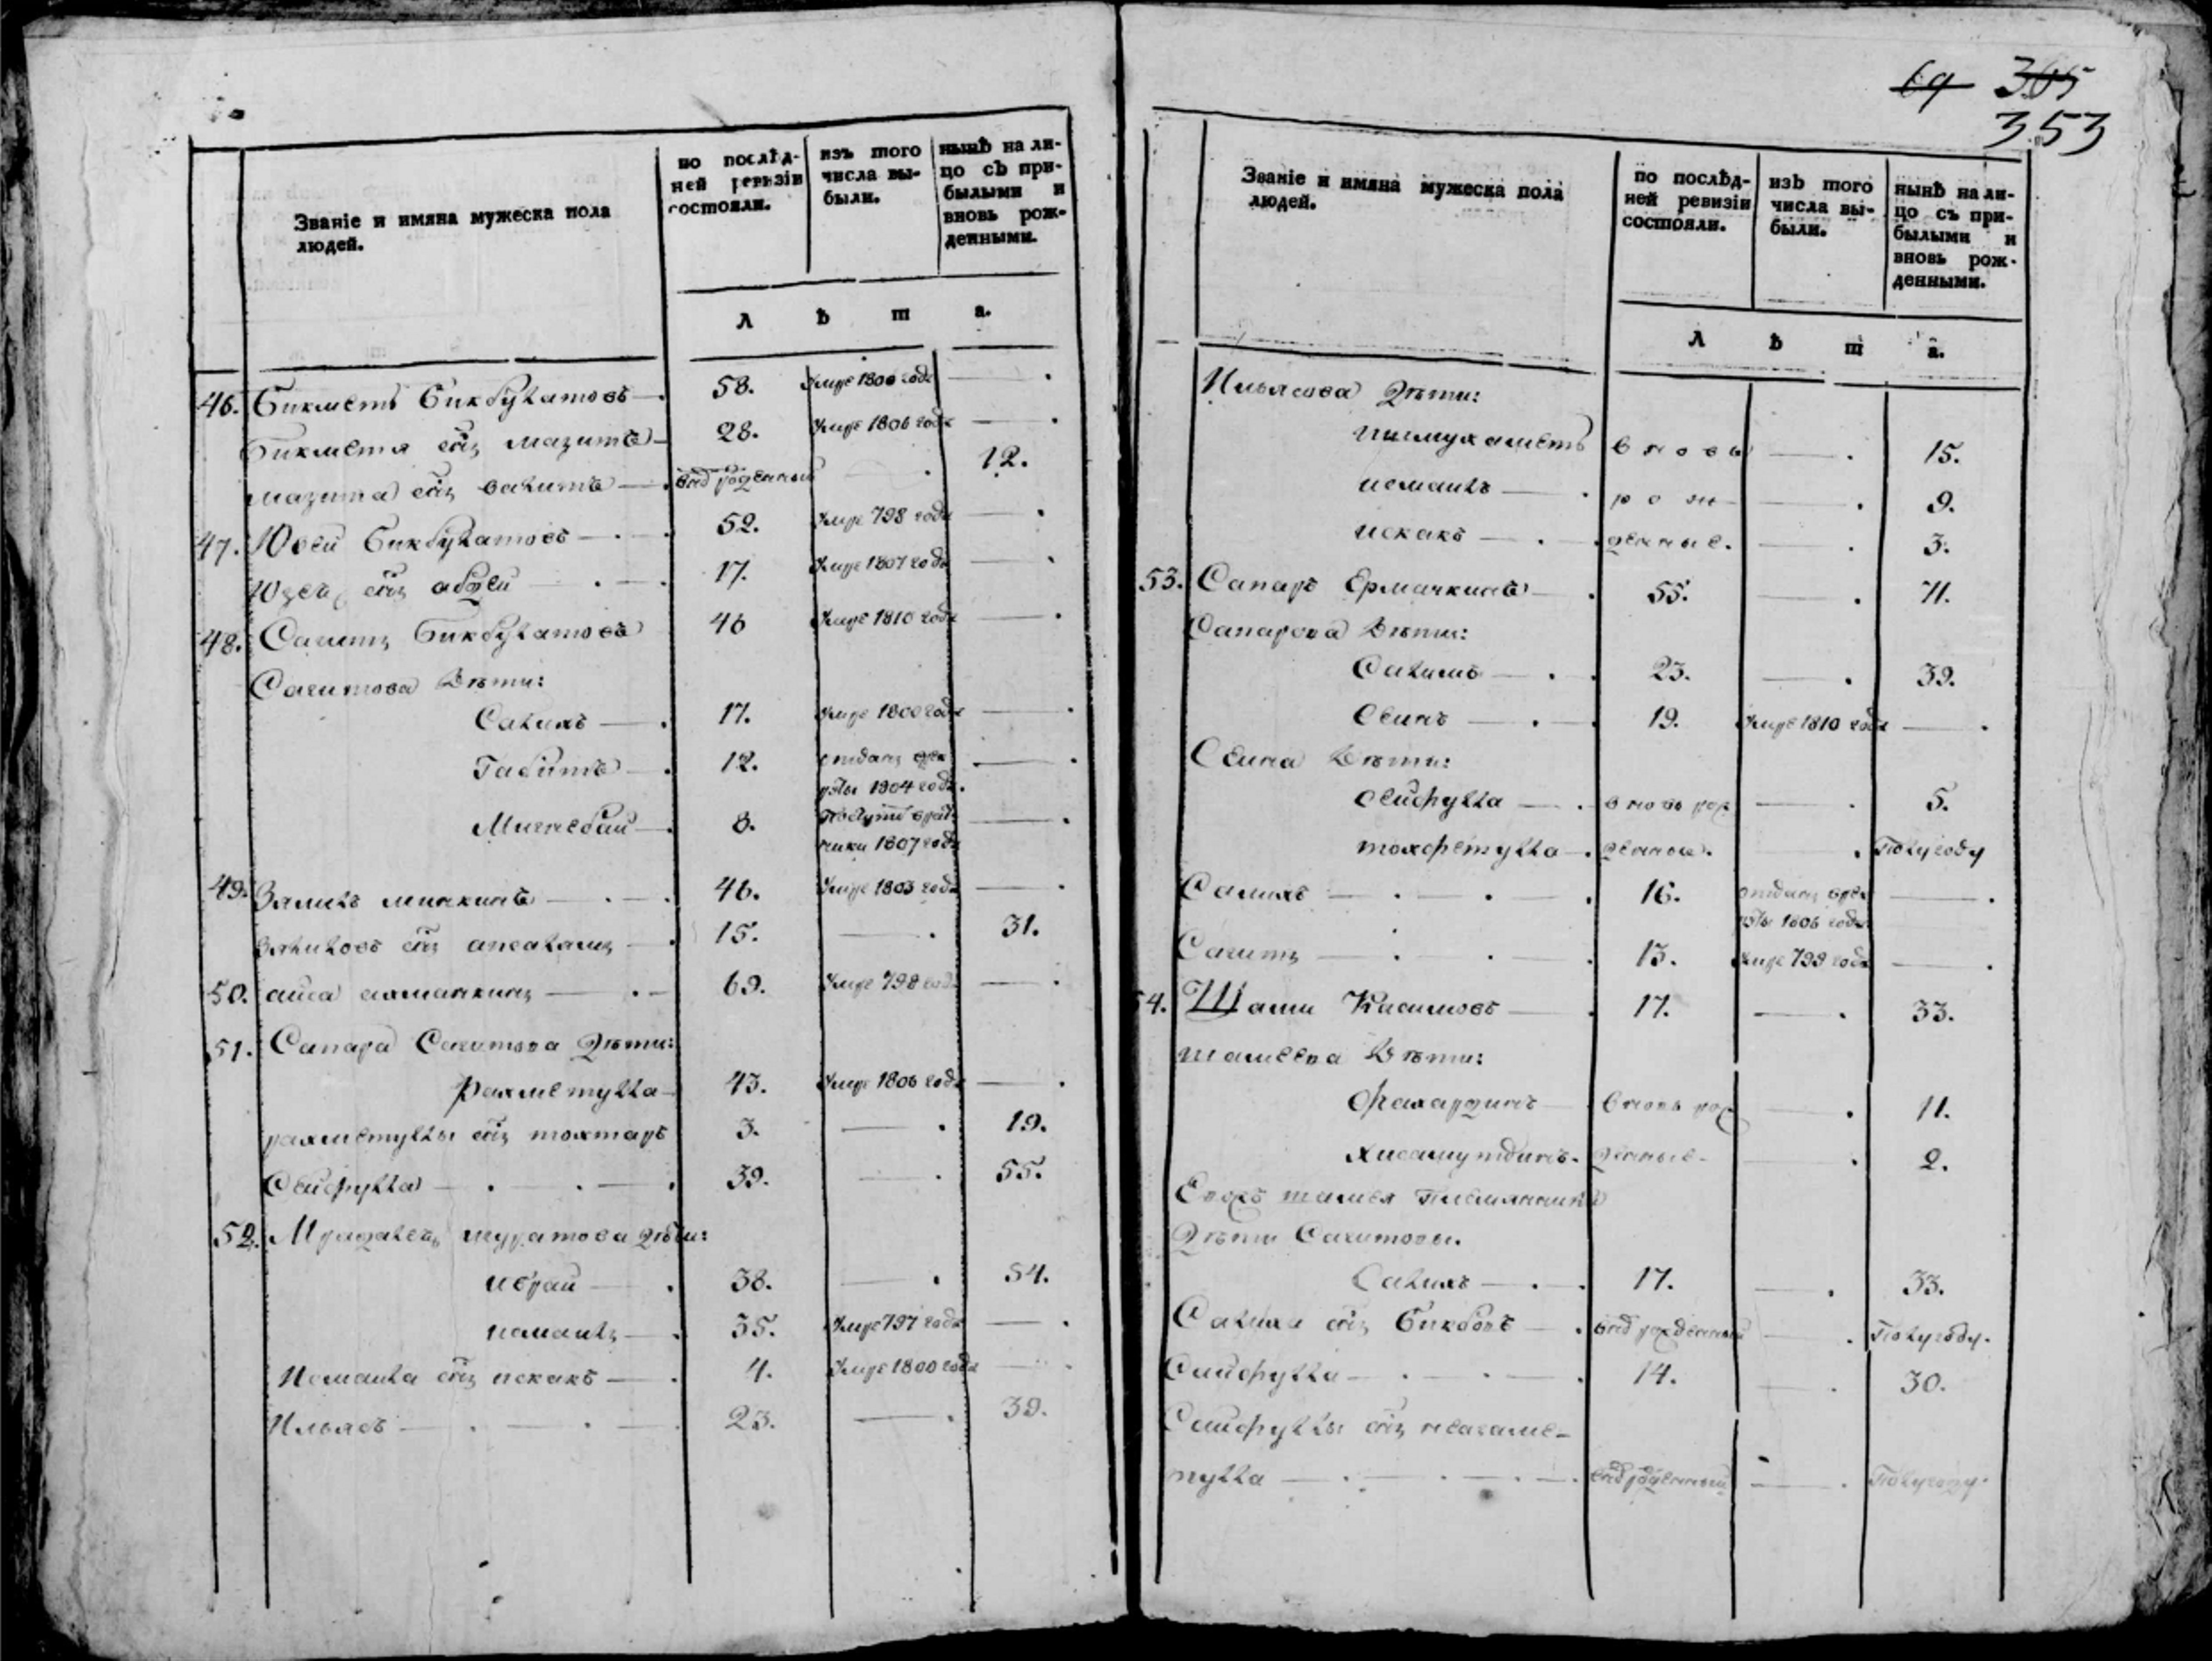 69 305
353
Званіе и имяна мужеска пола людей.
по послѣд-
ней ревизіи
состояли.
изъ того
числа вы-
были.
нынѣ на ли-
цо съ при-
былыми и
вновь рож-
денными.
л ѣ т а.
46. Бикметь Бикбулатовъ 58. умре 1800 года
Бикметя сынъ мазитъ 28. умре 1806 года
мазита сынъ валитъ внов рожденный 12.
47. Юсей Бикбулатовъ 52. умре 798 года
сынъ абдей 17. умре 1807 года
48. Сагитъ Бикбулатовъ 46 умре 1810 года
Сагитова Дѣти:
Салихъ 17. умре 1800 года
Габитъ 12. отданъ врек
руты 1804 года.
8. 
1807 года
49. Зяликъ минкинъ 46. умре 1803 года
сынъ апсалямъ 15. 31.
50. аиса ахманкинъ 69. умре 798 года
51. Сапара Сагитова дѣти:
Рахметулла 43. умре 1806 года
рахметуллы сынъ тохтаръ 3. 19.
Сейфулла 39. 55.
52. муратова дѣти:
ибрай 38. 54.
исмаилъ 35. умре 797 года
Исмаила сынъ искакъ 4. умре 1800 года
Ильясъ 23. 39.
Званіе и имяна мужеска пола
людей.
по послѣд-
ней ревизіи
состояли.
изъ того
числа вы-
были.
нынѣ на ли-
цо съ при-
былыми и
вновь рож-
денными.
л ѣ т а.
Ильясова дѣти:
ишмухаметь вновь 15.
исмаилъ рож 9.
искакъ денные. 3.
53. Сапаръ Ермачкинъ 55. 71.
Сапарова Дѣти:
Салимъ 23. 39.
Сеинъ 19. умре 1810 года
Сеина Дѣти:
сейфулла вновь рож 5.
тохфетулла денные. Полугоду
Салихъ 16. отданъ врек
руты 1806 года
Сагитъ 13. умре 799 года
54. Шами Касимовъ 17. 33.
шамеева Дѣти:
фахардинъ вновь рож 11.
хисамутдинъ денные 2.
Евожъ шамея племянники
Дѣти Сагитовы.
Салихъ 17. 33.
Салиха сынъ Бикбовъ внов рожденный Полугоду.
Сайфулла 14. 30.
Сайфуллы сынъ негаме-
тулла внов рожденный Полугоду.